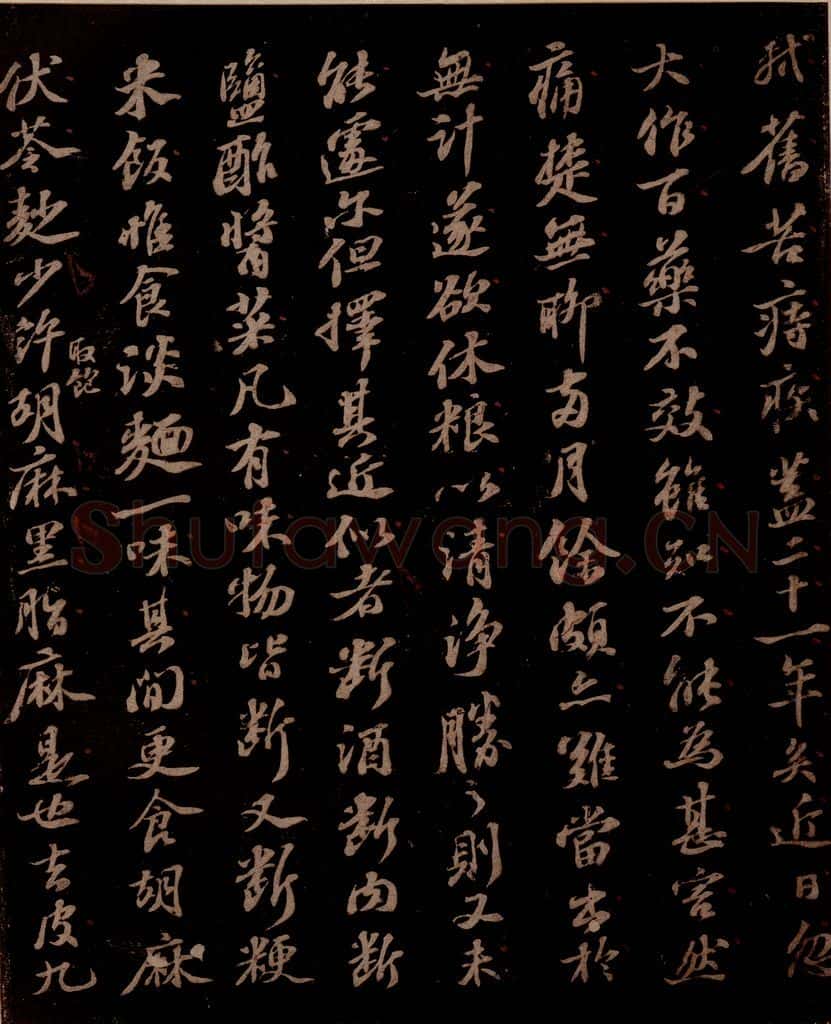 軾舊苦痔疾蓋二十一年矣近日忽
大作百藥不效雖知不能為甚害然
痛楚無聊兩月餘頗亦難當出於
無計遂欲休粮以清淨勝之則又未
能遽尔但擇其近似者斷酒斷肉斷
鹽酢醬菜凡有味物皆斷又斷粳
米飯惟食淡麵一味其間更食胡麻
伏苓麨少許取飽胡麻黑脂麻是也去皮九
Shufawang.CN